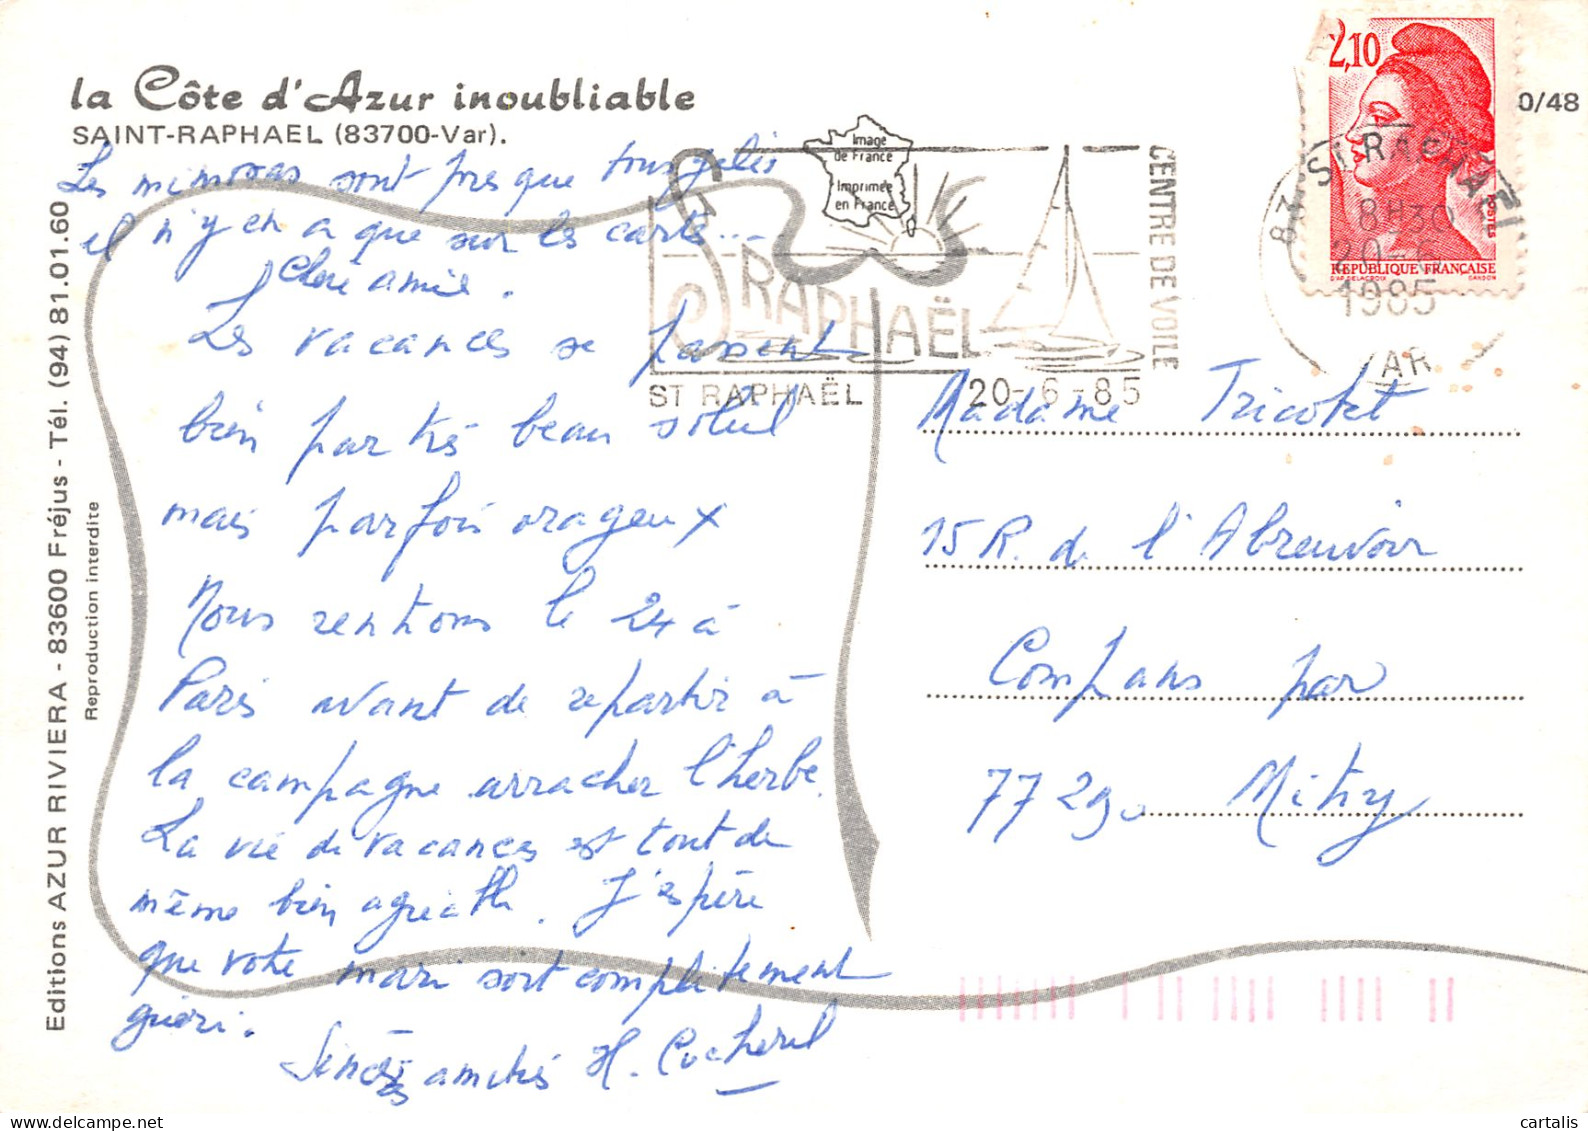 la Côte d'Azur inoubliable
SAINT-RAPHAEL (83700-Var).
Les mimosas sont presque tous gelés
il n'y en a que sur les cartes...
Chère amie.
Les vacances se passent
bien par très beau soleil
mais parfois orageux
Nous rentrons le 24 à
Paris avant de repartir à
la campagne arracher l'herbe.
La vie de vacances est tout de
même bien agréable. J'espère
que votre mari soit complètement
guéri.
Sincères amitiés H.
Editions AZUR RIVIERA - 83600 Fréjus - Tél. (94) 81.01.60
Reproduction interdite
Image
de France
Imprimée
en France
ST RAPHAËL
CENTRE DE VOILE
ST RAPHAËL 20-6-85
2,10
POSTES
REPUBLIQUE FRANÇAISE
D'AP. DELACROIX GANDON
0/48
83 ST RAPHAEL
8H30
20-6
1985
VAR
Madame Tricotet
15 R. de l'Abreuvoir
Compans par
77290 Mitry